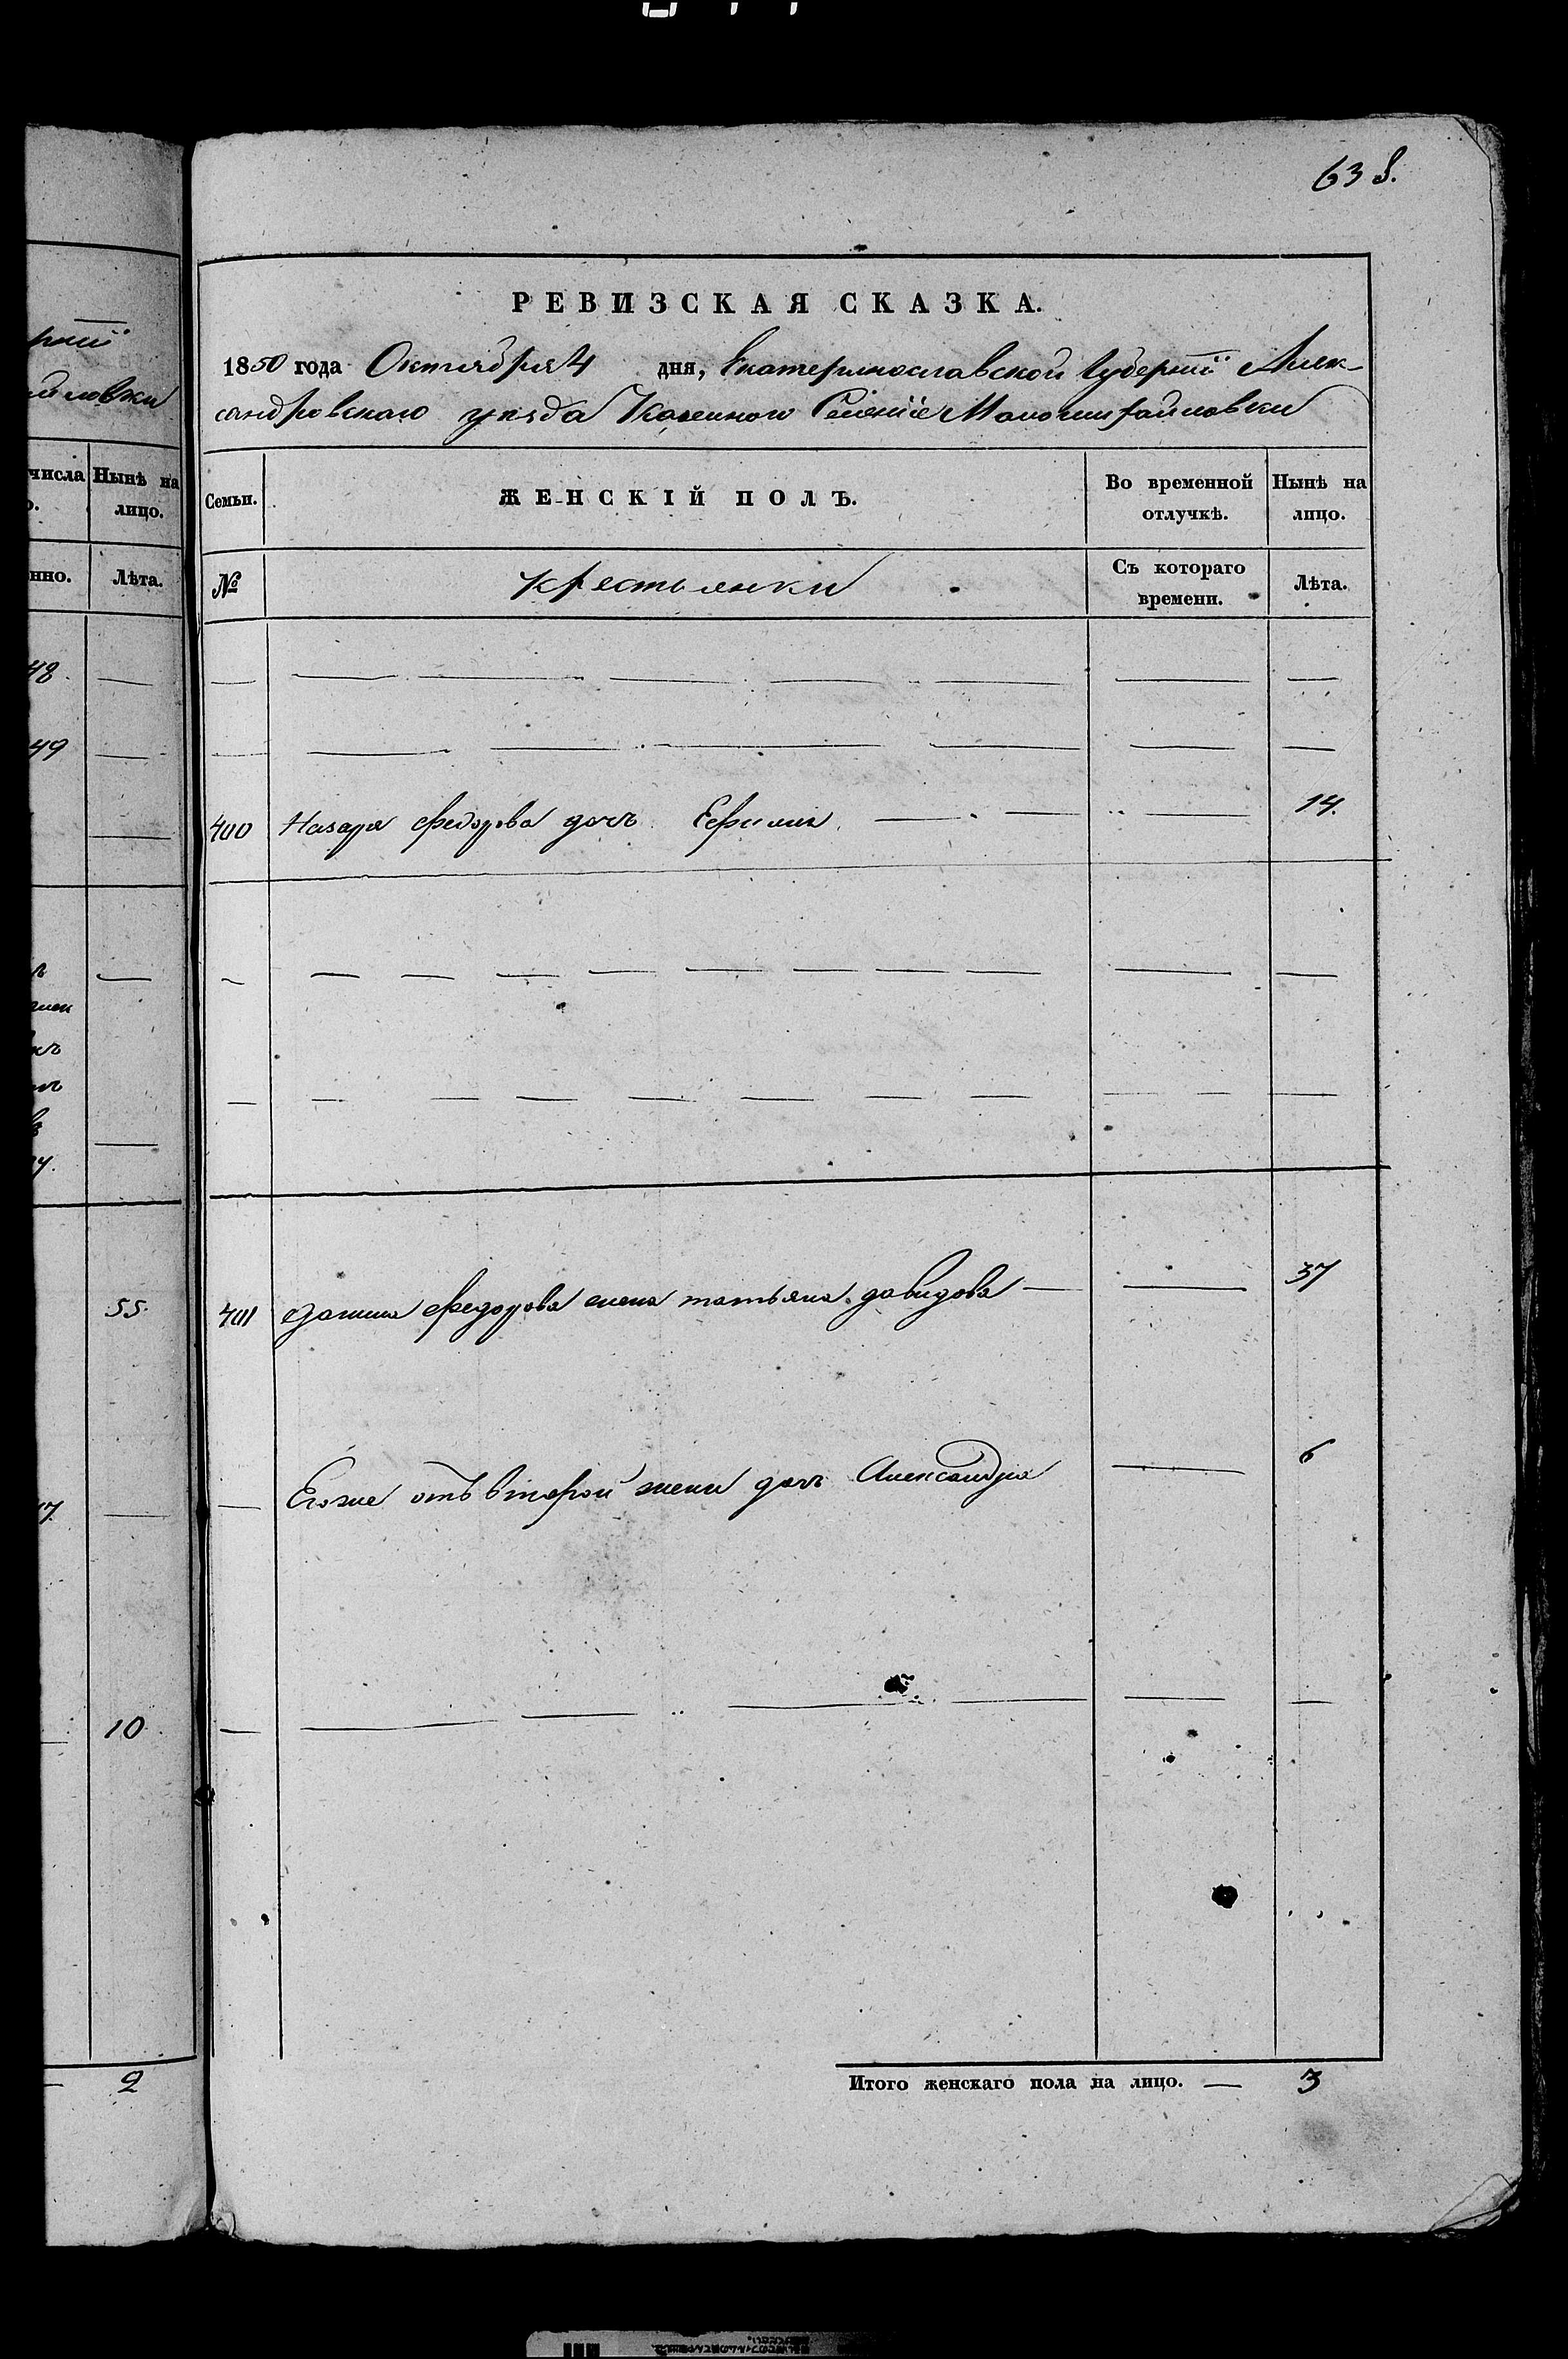 63 8.
рніи
йловки
числа
Нынѣ на лицо.
нно.
Лѣта.
48.
49
55.
17.
10
2
РЕВИЗСКАЯ СКАЗКА.
1850 года Октября 4 дня, Екатеринославской Губерніи Алек-
сандровскаго уѣзда Казеннаго Селеніе Маломихайловки
Семьи.
ЖЕНСКІЙ ПОЛЪ.
Во временной отлучкѣ.
Нынѣ на лицо.
№
крестьянки
Съ котораго времени.
Лѣта.
400 Назара Федорова дочь Ефимия — — — 14.
401 Федорова жена татьяна давидова — — 37
— Егоже отъ второй жени дочь Александра — 6
Итого женскаго пола на лицо. — 3